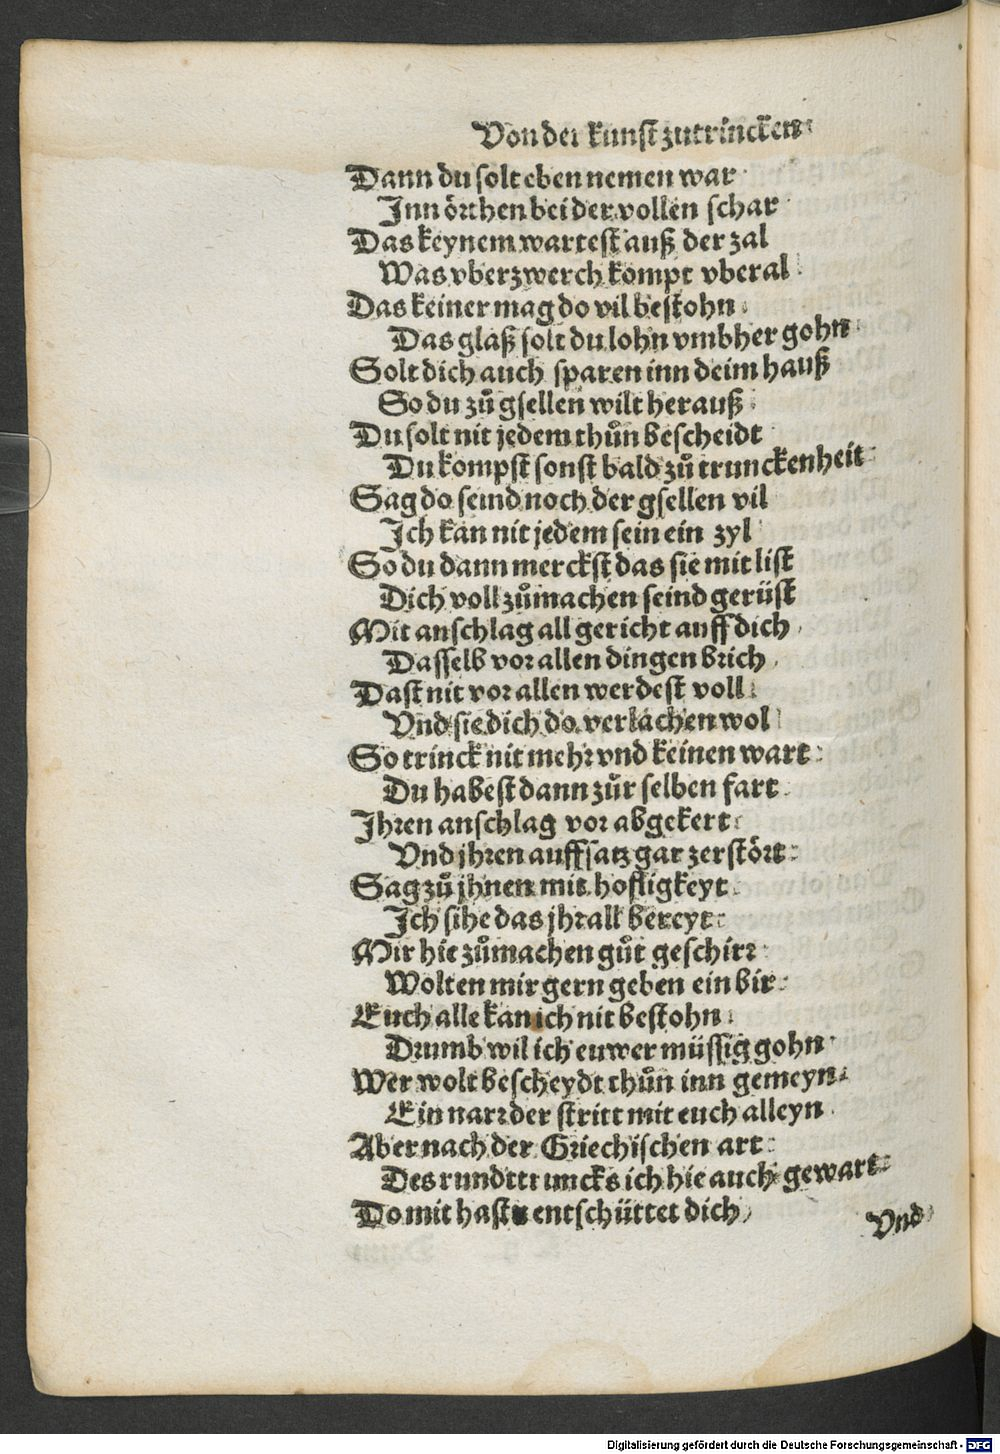 Von der kunst zutrincken
Dann du solt eben nemen war
Inn örthen bei der vollen schar
Das keynem wartest auß der zal
Was vberzwerch kompt vberal
Das keiner mag do vil bestohn
Das glaß solt du lohn vmbher gohn
Solt dich auch sparen inn deim hauß
So du zů gsellen wilt herauß
Du solt nit jedem thůn bescheidt
Du kompst sonst bald zů trunckenheit
Sag do seind noch der gsellen vil
Ich kan nit jedem sein ein zyl
So du dann merckst das sie mit list
Dich voll zůmachen seind gerüst
Mit anschlag all gericht auff dich
Dasselb vor allen dingen brich
Dast nit vor allen werdest voll
Vnd sie dich do verlachen wol
So trinck nit mehr vnd keinen wart
Du habest dann zůr selben fart
Ihren anschlag vor abgekert
Vnd jhren auffsatz gar zerstört
Sag zů jhnen mit hofligkeyt
Ich sihe das jhr all bereyt
Mir hie zůmachen gůt geschirr
Wolten mir gern geben ein bir
Euch alle kan ich nit bestohn
Drumb wil ich euwer müssig gohn
Wer wolt bescheydt thůn inn gemeyn
Ein narr der stritt mit euch alleyn
Aber nach der Griechischen art
Des rundttruncks ich hie auch gewart
Do mit hastu entschüttet dich
Vnd
Digitalisierung gefördert durch die Deutsche Forschungsgemeinschaft - DFG